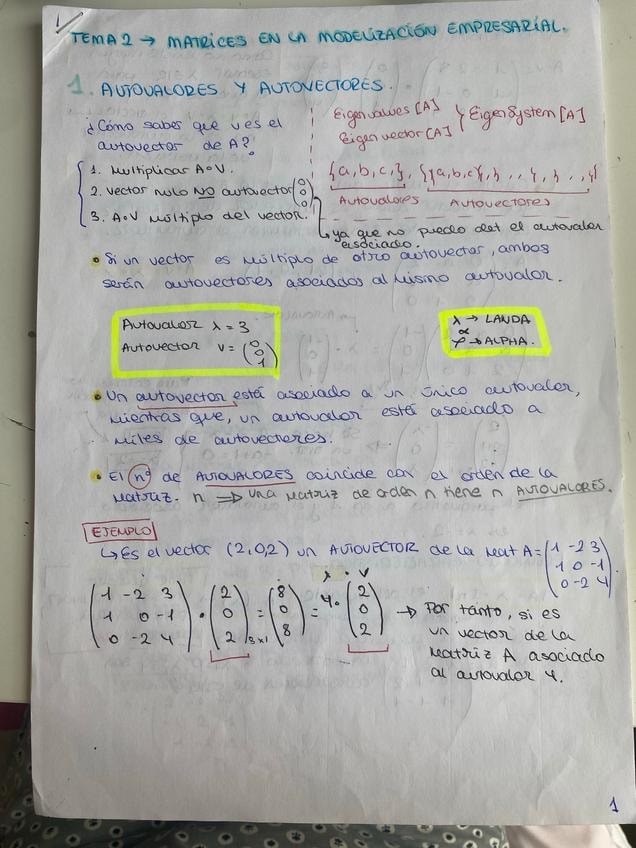 1
TEMA 2 → MATRICES EN LA MODELIZACIÓN EMPRESARIAL.
1. AUTOVALORES Y AUTOVECTORES.
¿Cómo saber que v es el
autovector de A?
1. Multiplicar A∘V.
2. Vector nulo NO autovector (0 0 0)
3. A∘V múltiplo del vector.
Eigenvalues [A]
Eigenvector [A]
} EigenSystem [A]
{a,b,c,}, {{a,b,c},{ , , },{ , , }}
Autovalores
Autovectores
↳ ya que no puedo det el autovalor
asociado.
• Si un vector es múltiplo de otro autovector, ambos
serán autovectores asociados al mismo autovalor.
Autovalor λ = 3
Autovector v = (0 0 1)
λ → LANDA
α
φ → ALPHA.
• Un autovector está asociado a un único autovalor,
mientras que, un autovalor está asociado a
miles de autovectores.
• El nº de AUTOVALORES coincide con el orden de la
Matriz. n ⇒ una matriz de orden n tiene n AUTOVALORES.
EJEMPLO
↳ Es el vector (2,0,2) un AUTOVECTOR de la Mat A = (1 -2 3
1 0 -1
0 -2 4).
λ · V
(1 -2 3) (2) (8) (2)
(1 0 -1) · (0) = (0) = 4· (0)
(0 -2 4) (2) 3x1 (8) (2)
→ Por tanto, si es
un vector de la
Matriz A asociado
al autovalor 4.
1